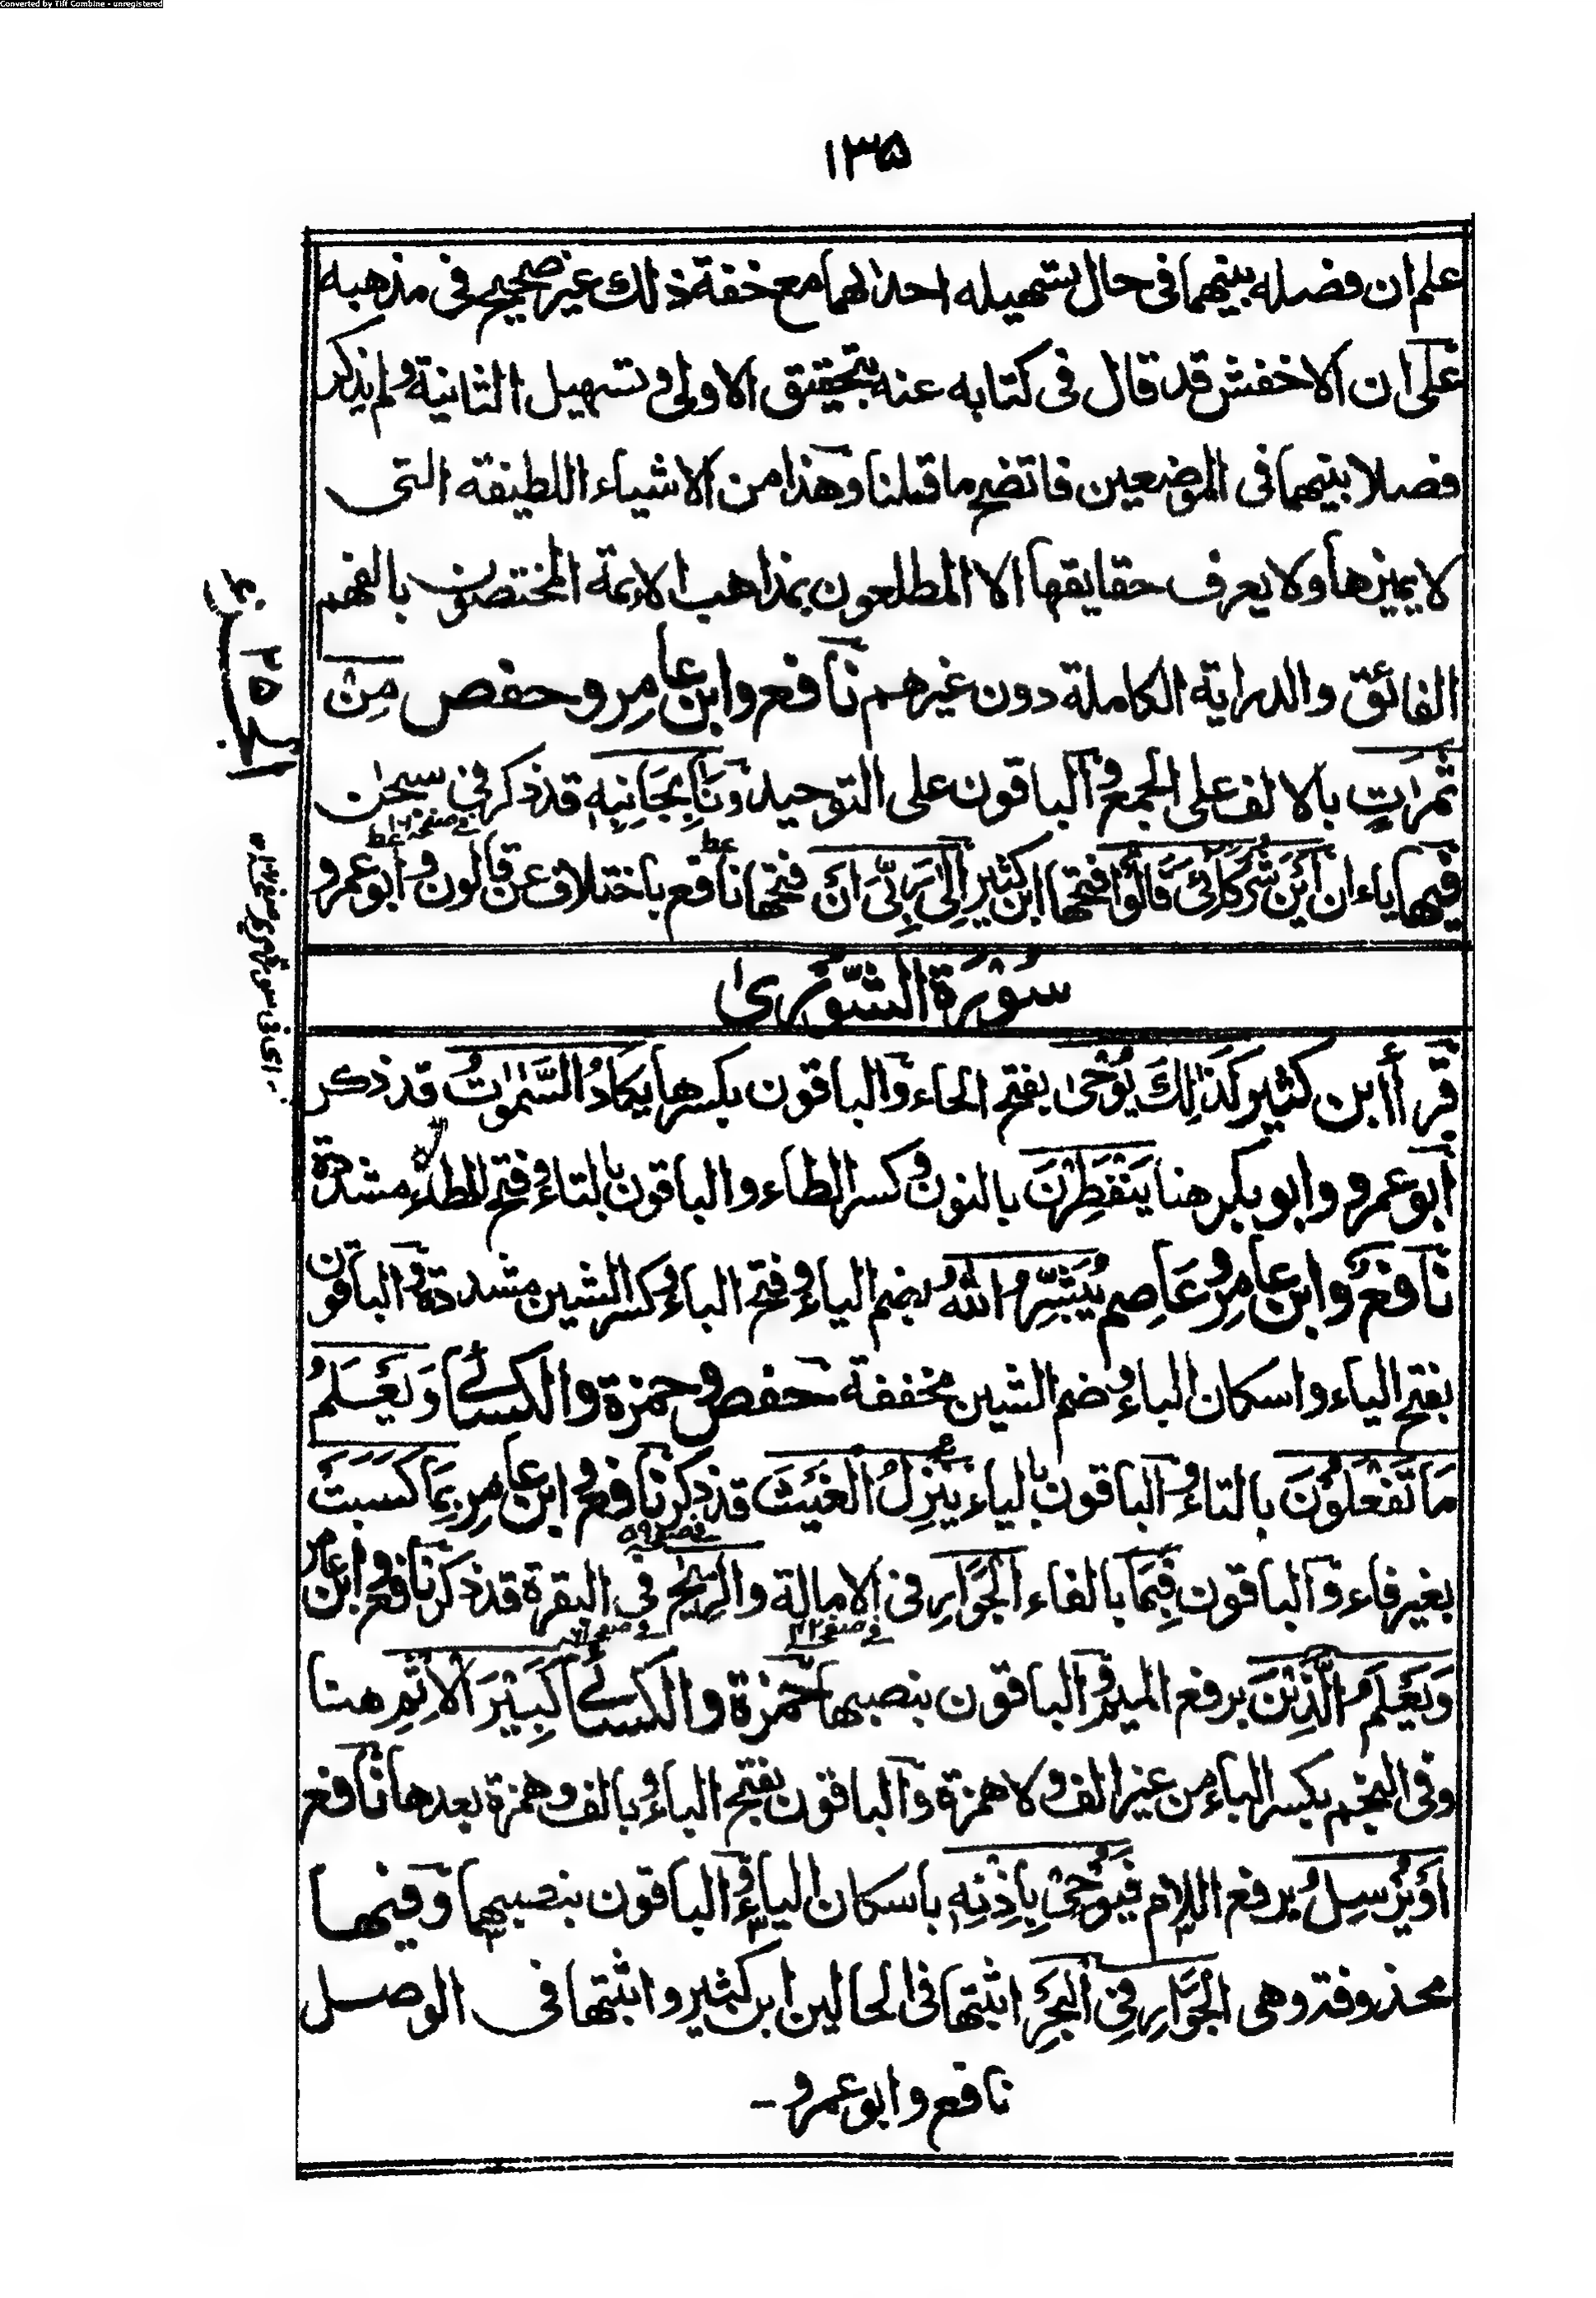 Converted by Tiff Combine - unregistered
١٣٥
علم ان فصله بينهما فى حال تسهيله احدٰلهما مع خفة ذلك غير صحيح فى مذهبه
على ان الاخفش قد قال فى كتابه عنه بتحقيق الاولى وتسهيل الثانية ولم يذكر
فصلا بينهما فى الموضعين فاتضح ما قلنا وهذا من الاشياء اللطيفة التى
لا يميزها ولا يعرف حقايقها الا المطلعون بمذاهب الائمة المختصون بالفهم
الفائق والدراية الكاملة دون غيرهم نافع وابن عامر وحفص مِنْ
ثَمَرٰتٍ بالالف على الجمع والباقون على التوحيد وَنَاٰ بِجَانِبِهٖ قد ذكر فى سبحٰن
فيها ياءان اَيْنَ شُرَكَائِىَ قَالُوْا فتحها ابن كثير اِلٰى رَبِّىَ اَنَ فتحها نافع باختلاف عن قالون وابو عمرو
سُوْرَةُ الشُّوْرىٰ
قرأ ابن كثير كَذٰلِكَ يُوْحٰى بفتح الحاء والباقون بكسرها يَكَادُ السَّمٰوٰتُ قد ذكر
ابو عمرو وابو بكر هنا يَنْفَطِرْنَ بالنون وكسر الطاء والباقون بالتاء وفتح الطاء مشددة
نافع وابن عامر وعاصم يُبَشِّرُ اللّٰهُ بضم الياء وفتح الباء وكسر الشين مشددة والباقون
بفتح الياء واسكان الباء وضم الشين مخففة حفص وحمزة والكسائى وَيَعْلَمُ
مَا تَفْعَلُوْنَ بالتاء والباقون بالياء يُنَزِّلُ الْغَيْثَ قد ذكر نافع وابن عامر بِمَا كَسَبَتْ
بغير فاء والباقون فَبِمَا بالفاء الْجَوَارِ فى الامالة والرِّيْحَ فى البقرة قد ذكر نافع وابن عامر
وَيَعْلَمُ الَّذِيْنَ برفع الميم والباقون بنصبها حمزة والكسائى كَبِيْرَ الْاِثْمِ هنا
وفى النجم بكسر الباء من غير الف ولا همزة والباقون بفتح الباء وبالف وهمزة بعدها نافع
اَوْ يُرْسِلُ برفع اللام فَيُوْحِىْ بِاِذْنِهٖ باسكان الياء والباقون بنصبهما وفيها
محذوفة وهى الْجَوَارِ فِى الْبَحْرِ اثبتها فى الحالين ابن كثير واثبتها فى الوصل
نافع وابو عمرو -